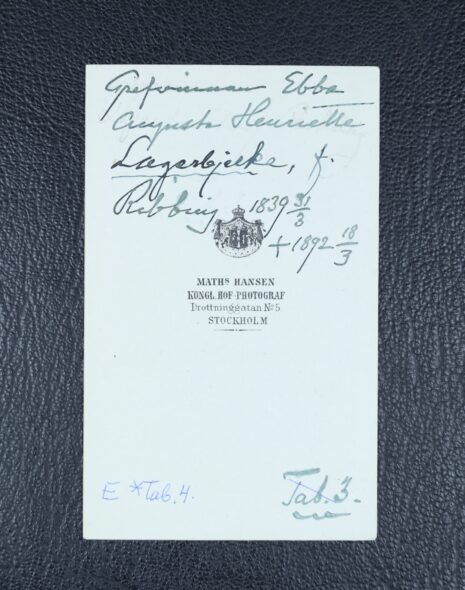 Grefvinnan Ebba
Augusta Henriette
Lagerbjelke, f.
Ribbing 1839 31/3
+ 1892 18/3
MATHS HANSEN
KONGL. HOF-PHOTOGRAF
Drottninggatan No 5
STOCKHOLM
E *Tab. 4.
Tab. 3.